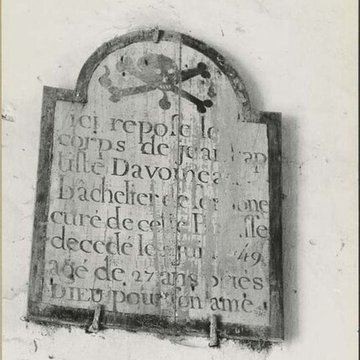 ici repose le
corps de jean bap
tiste Davoine
Bachelier de
curé de cette
decedé le
agé de 27 ans priés
DIEU pour son ame